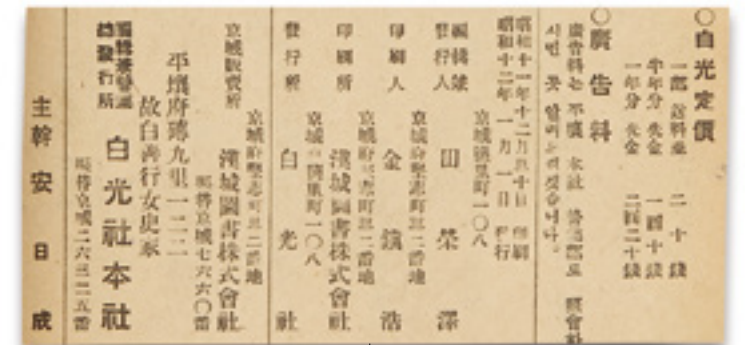 ○白光定價
一部 送料並 二十錢
半年分 先金 一圓十錢
一年分 先金 二圓二十錢
○廣告料
廣告料는 平壤 本社
昭和十一年十二月三十日 印刷
昭和十二年 一月一日 發行
京城 町一〇八
編輯兼發行人 田榮澤
京城府堅志町三二番地
印刷人 金鎭浩
京城府堅志町三二番地
印刷所 漢城圖書株式會社
京城 町一〇八
發行所 白光社
京城府堅志町三二番地
京城販賣所 漢城圖書株式會社
振替京城七六六〇番
平壤府 九里一二二
故白善行女史家
總發行所 白光社本社
振替京城二六三二五番
主幹 安日成